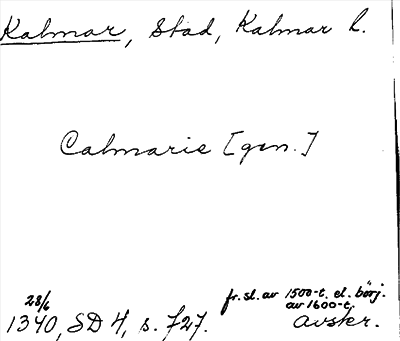 Kalmar, Stad, Kalmar l.
Calmarie [gen.]
28/6
1340, SD 4, s. 727.
fr. sl. av 1500-t. el. börj.
av 1600-t.
Avskr.